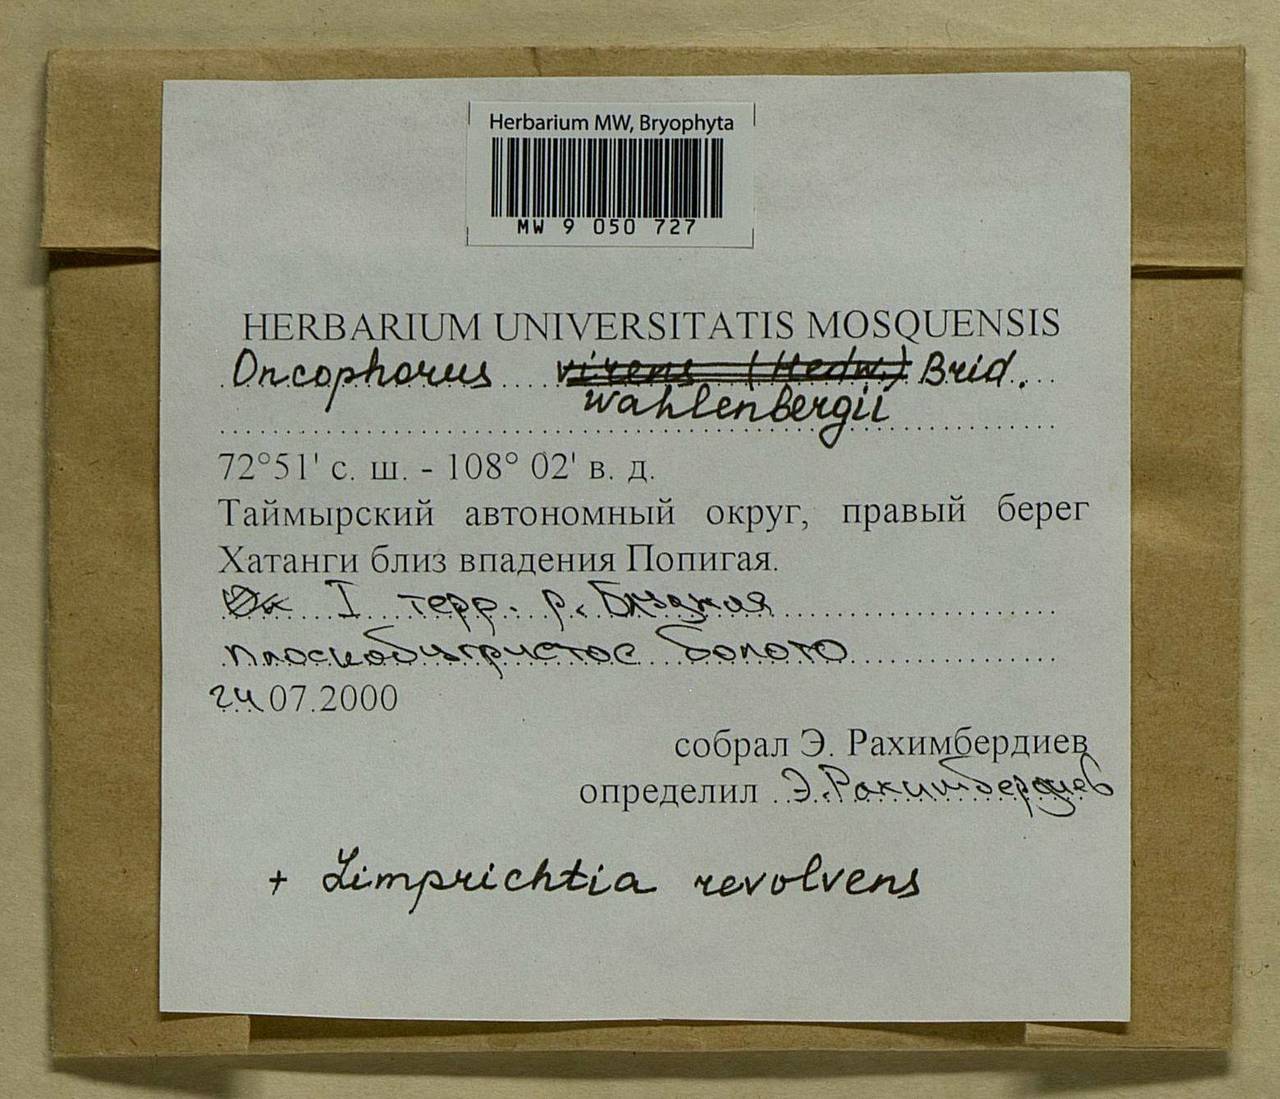 Herbarium MW, Bryophyta
MW 9 050 727
HERBARIUM UNIVERSITATIS MOSQUENSIS
Oncophorus virens (Hedw.) Brid.
wahlenbergii
72°51' с. ш. - 108° 02' в. д.
Таймырский автономный округ, правый берег
Хатанги близ впадения Попигая.
I терр. р.
плоскобугристое болото
24.07.2000
собрал Э. Рахимбердиев
определил Э. Рахимбердиев
+ Limprichtia revolvens